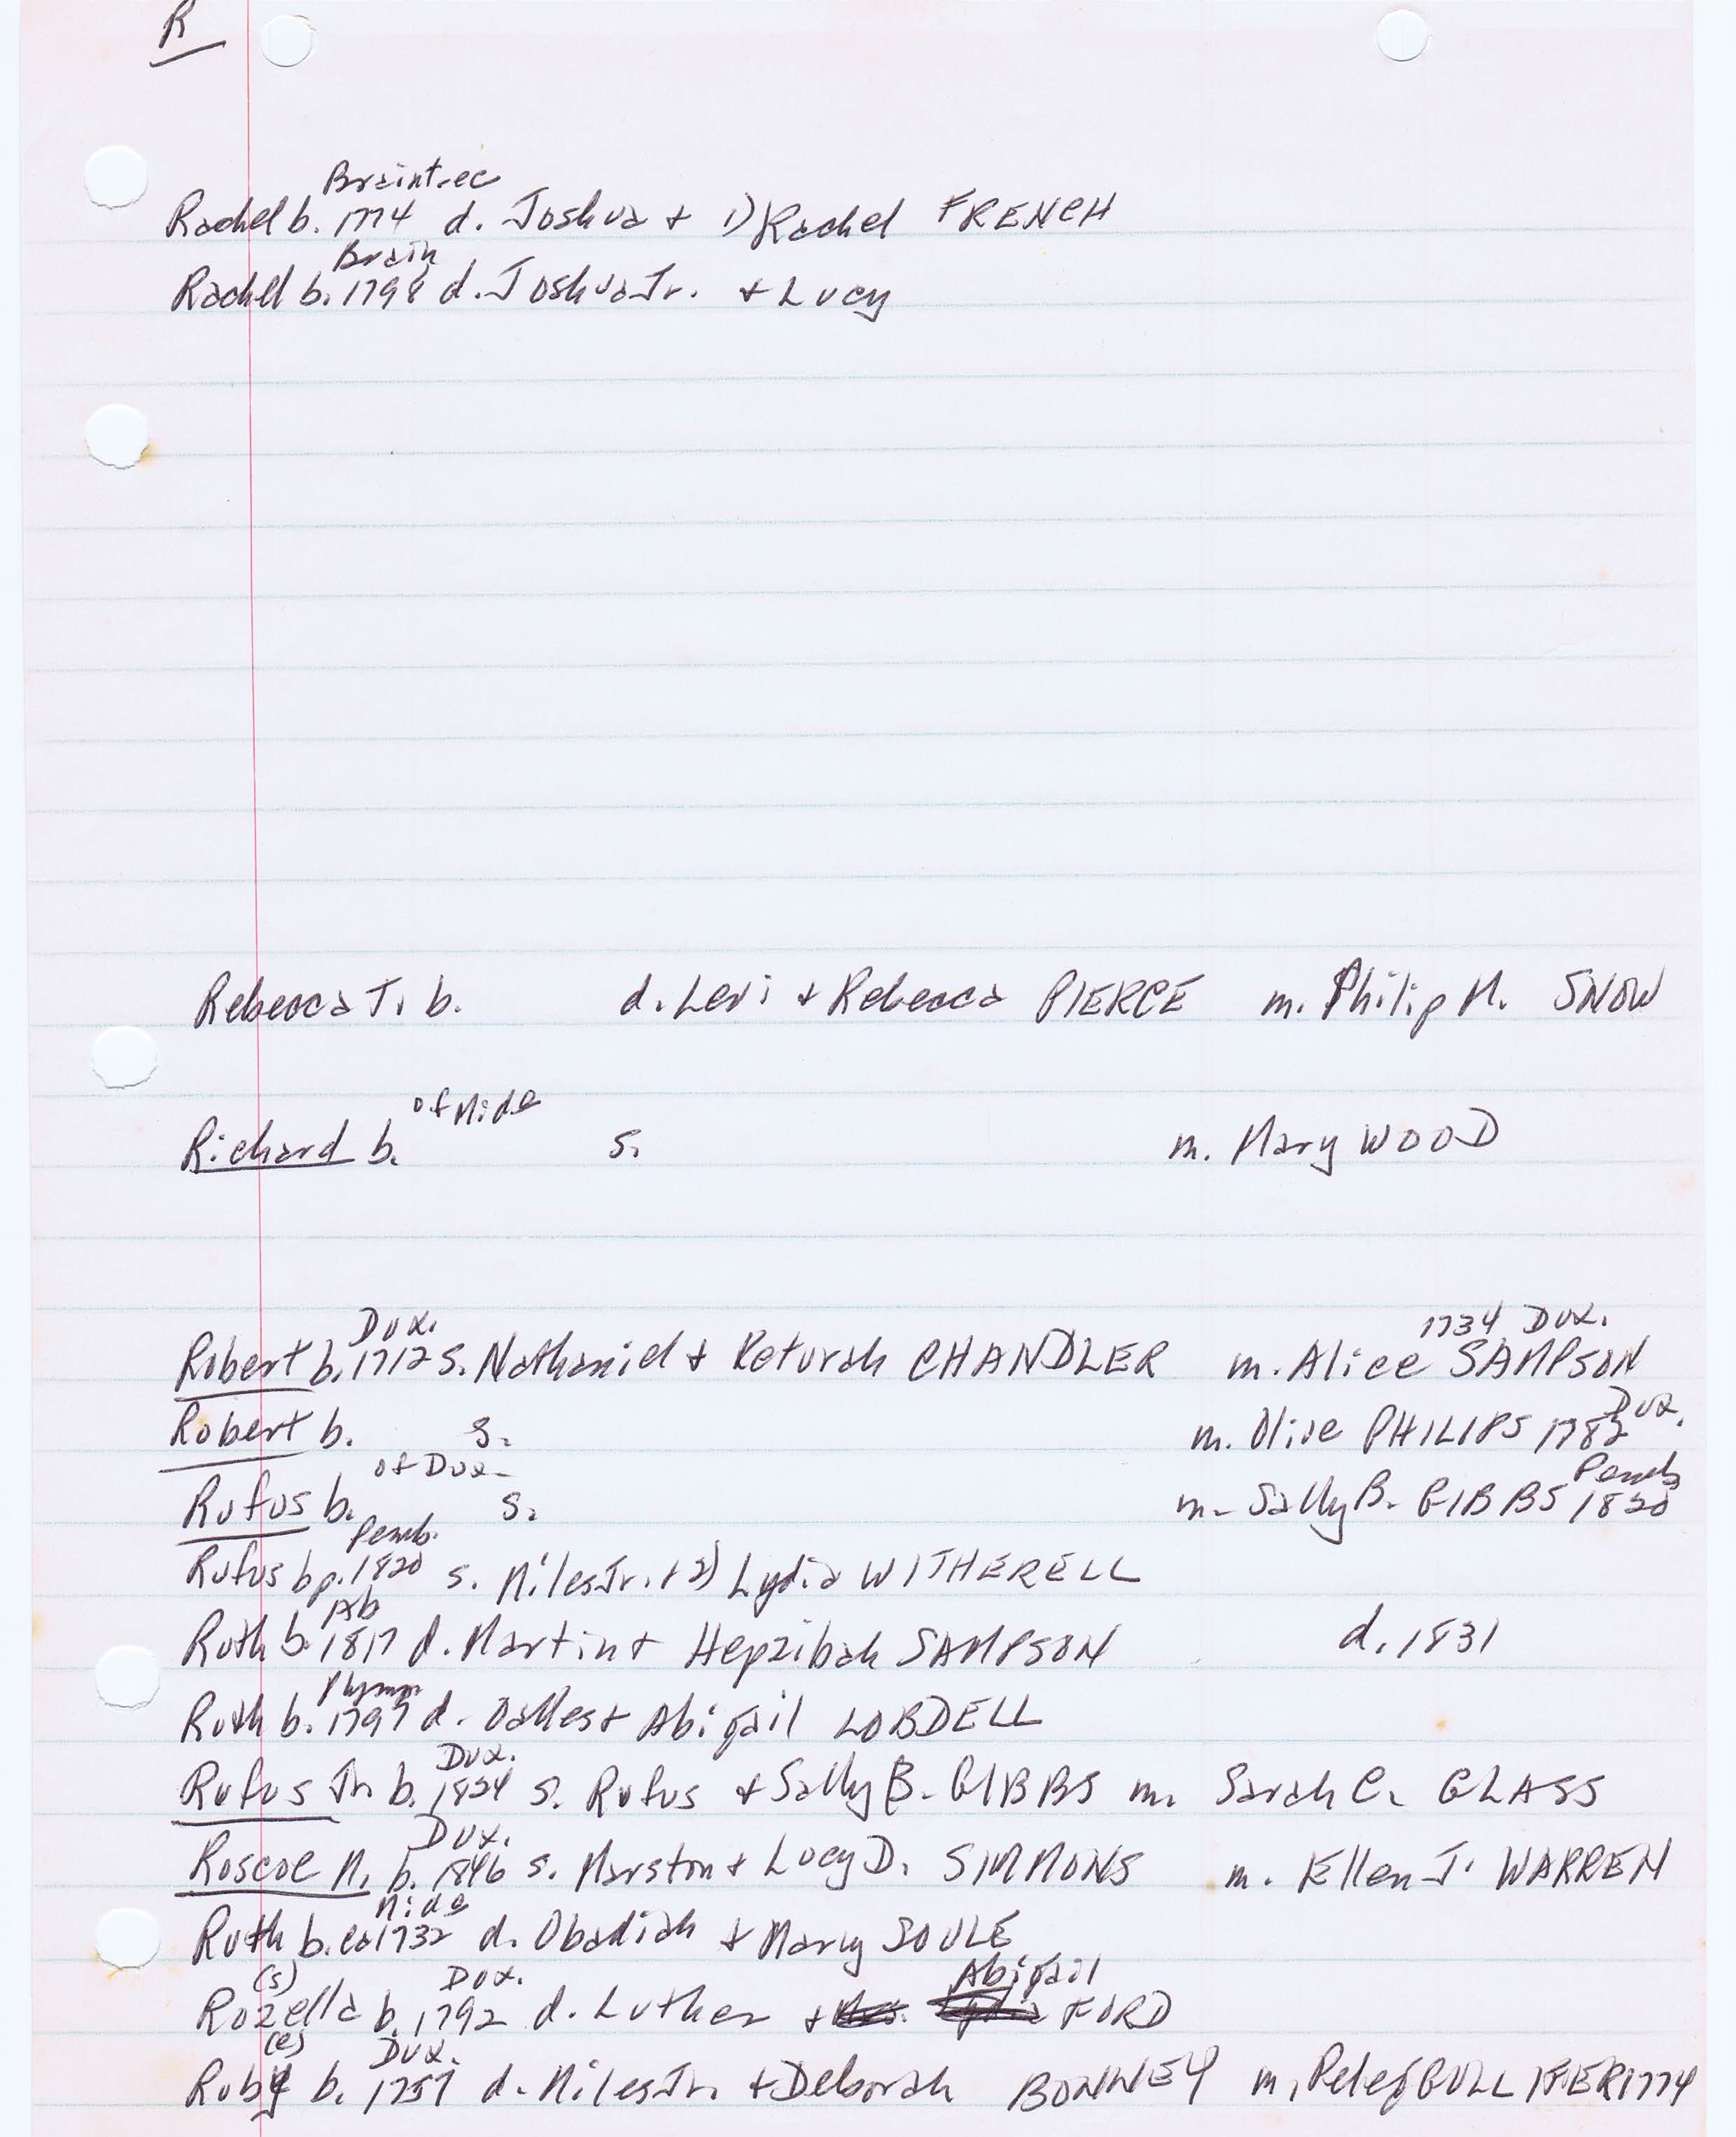 R
Braintree
Rachel b. 1774 d. Joshua + 1) Rachel FRENCH
Brain
Rachel b. 1798 d. Joshua Jr. + Lucy
Rebecca T. b. d. Levi + Rebecca PIERCE m. Philip M. SNOW
of Midd
Richard b. s. m. Mary WOOD
Dux. 1734 Dux.
Robert b. 1712 s. Nathaniel + Keturah CHANDLER m. Alice SAMPSON
Dux.
Robert b. s. m. Olive PHILIPS 1782
of Dux. Pemb
Rufus b. s. m. Sally B. GIBBS 1820
Pemb.
Rufus bp. 1820 s. Miles Jr. + 2) Lydia WITHERELL
Ab
Ruth b. 1817 d. Martin + Hepzibah SAMPSON d. 1831
Plymp
Ruth b. 1797 d. Oakes + Abigail LOBDELL
Dux.
Rufus Jr. b. 1824 s. Rufus + Sally B. GIBBS m. Sarah C. GLASS
Dux.
Roscoe M. b. 1846 s. Marston + Lucy D. SIMMONS m. Ellen J. WARREN
Midd
Ruth b. ca 1732 d. Obadiah + Mary SOULE
(s) Dux. Abigail
Rozella b. 1792 d. Luther + FORD
(e) Dux.
Ruby b. 1757 d. Miles Jr. + Deborah BONNEY m. Peleg GULLIFER 1774